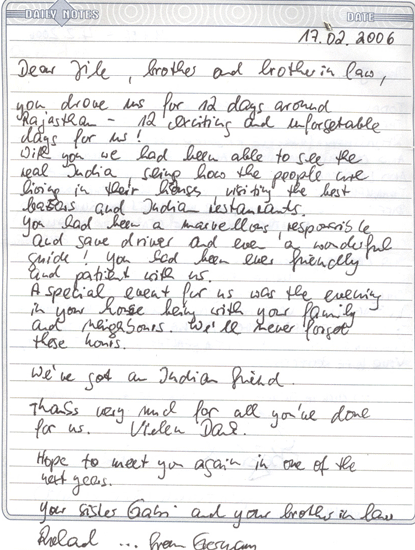 DAILY NOTES
DATE
17.02.2006
Dear , brother and brother in law,
you drove us for 12 days around
Rajasthan - 12 exciting and unforgetable
days for us!
With you we had been able to see the
real India, seing how the people are
living in their houses, visiting the best
bazars and Indian restaurants.
You had been a marvellous, responsible
and save driver and even a wonderful
guide! You had been ever friendly
and patient with us.
A special event for us was the evening
in your house being with your family
and neighbours. We'll never forget
these hours.
We've got an Indian friend.
Thanks very much for all you've done
for us. Vielen Dank.
Hope to meet you again in one of the
next years.
Your sister Gabi and your brother in law
... from Germany